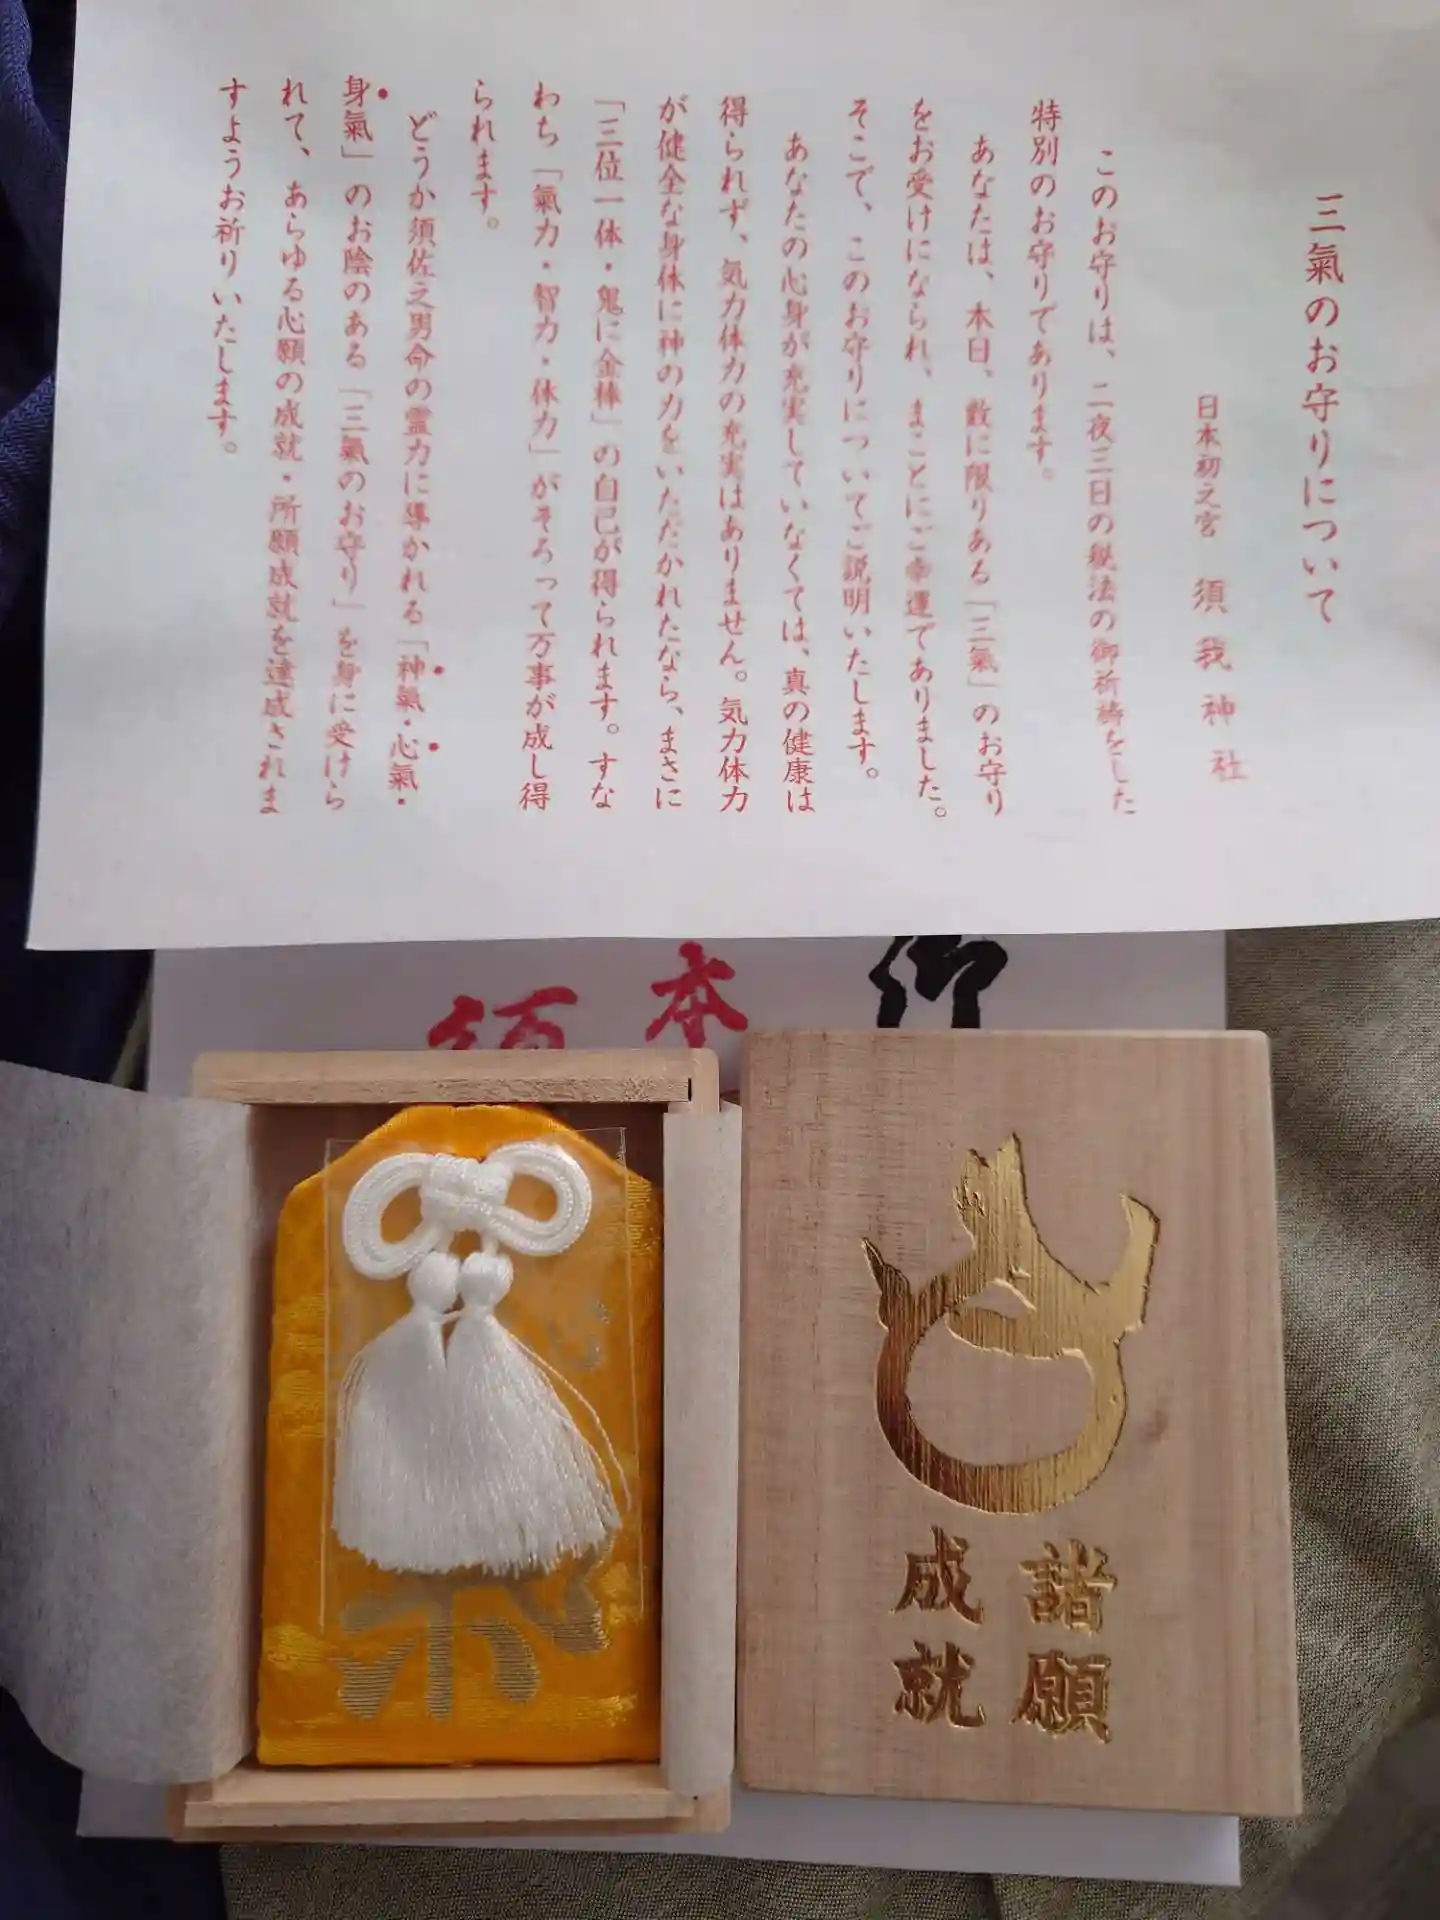 三氣のお守りについて
日本初之宮　須我神社
このお守りは、二夜三日の秘法の御祈祷をした
特別のお守りであります。
あなたは、本日、数に限りある「三氣」のお守り
をお受けになられ、まことにご幸運でありました。
そこで、このお守りについてご説明いたします。
あなたの心身が充実していなくては、真の健康は
得られず、気力体力の充実はありません。気力体力
が健全な身体に神の力をいただかれたなら、まさに
「三位一体・鬼に金棒」の自己が得られます。すな
わち「氣力・智力・体力」がそろって万事が成し得
られます。
どうか須佐之男命の霊力に導かれる「神氣・心氣・
身氣」のお陰のある「三氣のお守り」を身に受けら
れて、あらゆる心願の成就・所願成就を達成されま
すようお祈りいたします。
御
本
須
諸願
成就